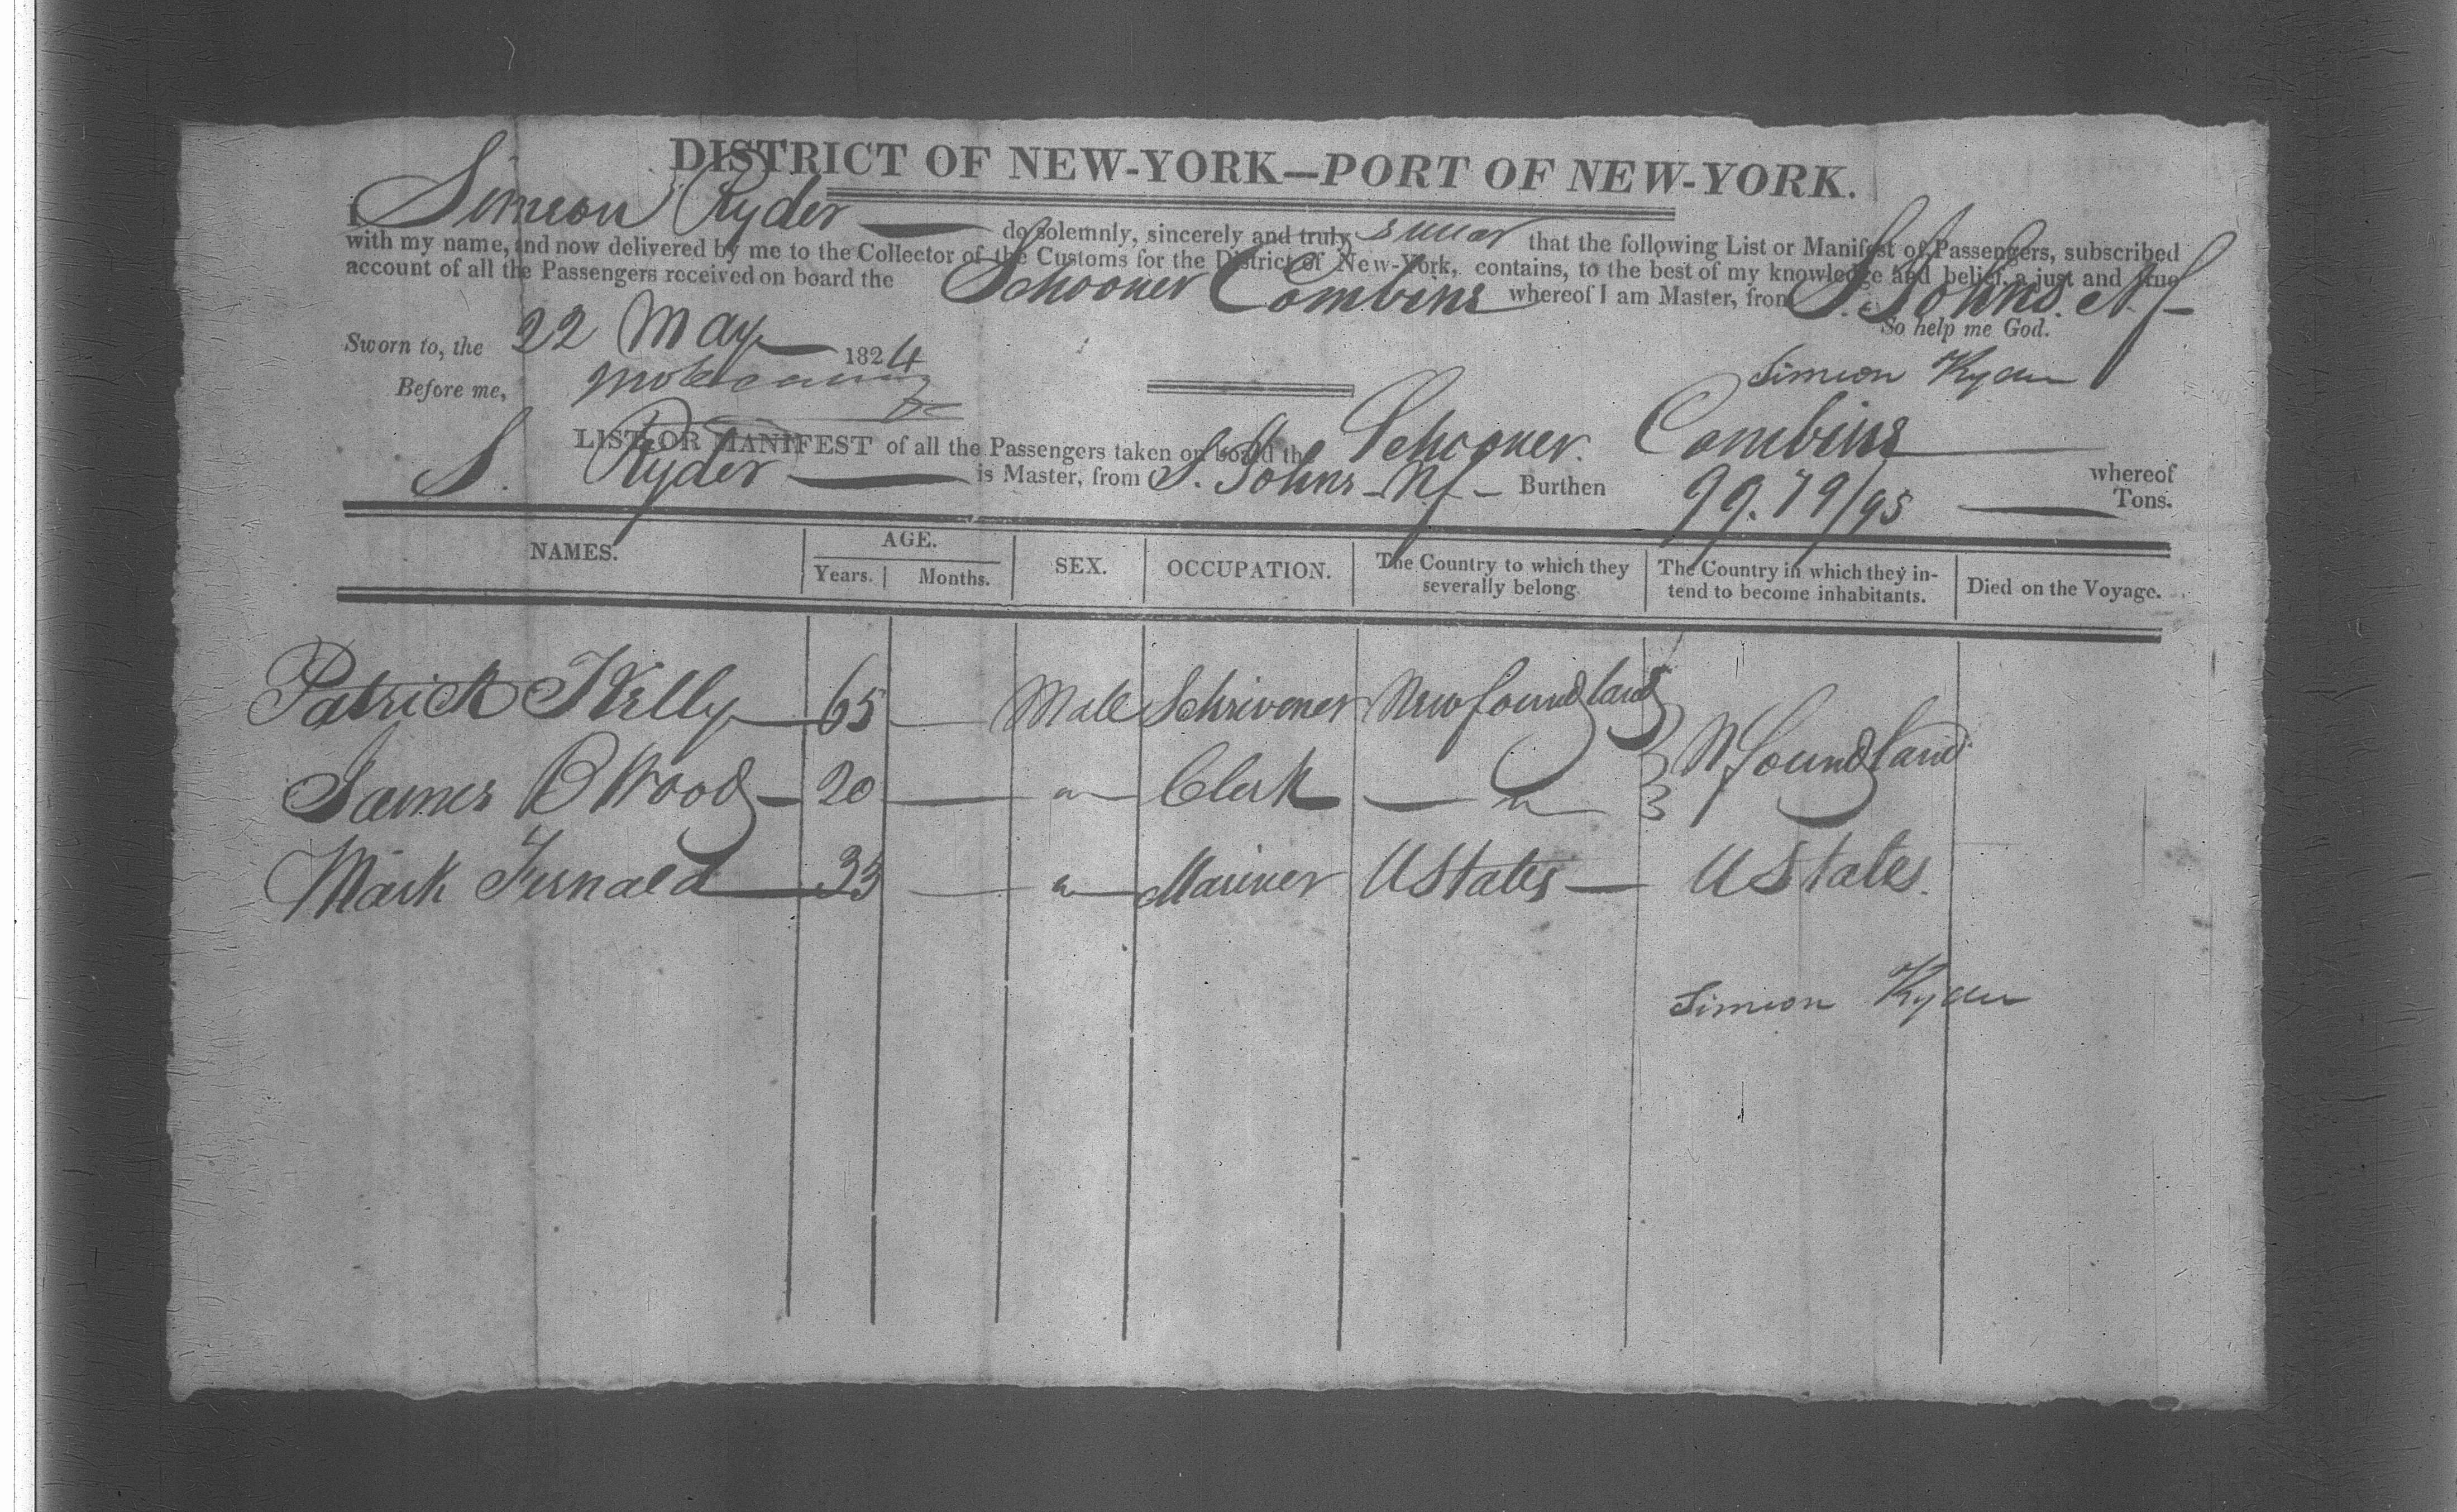 DISTRICT OF NEW-YORK—PORT OF NEW-YORK.
I Simeon Ryder do solemnly, sincerely and truly swear that the following List or Manifest of Passengers, subscribed
with my name, and now delivered by me to the Collector of the Customs for the District of New-York, contains, to the best of my knowledge and belief, a just and true
account of all the Passengers received on board the Schooner Combine whereof I am Master, from St. Johns. Nf
So help me God.
Sworn to, the 22 May 1824
Simeon Ryder
Before me,
LIST OR MANIFEST of all the Passengers taken on board the Schooner Combine whereof
S. Ryder is Master, from St. Johns Nf Burthen 99. 79/95 Tons.
NAMES. AGE. SEX. OCCUPATION. The Country to which they severally belong The Country in which they in-tend to become inhabitants. Died on the Voyage.
Years. Months.
Patrick Kelly 65 — Male Schrivener Newfoundland
James B Wood 20 — " Clerk — " Nfoundland
Mark Fernald 33 — " Mariner UStates — UStates.
Simeon Ryder